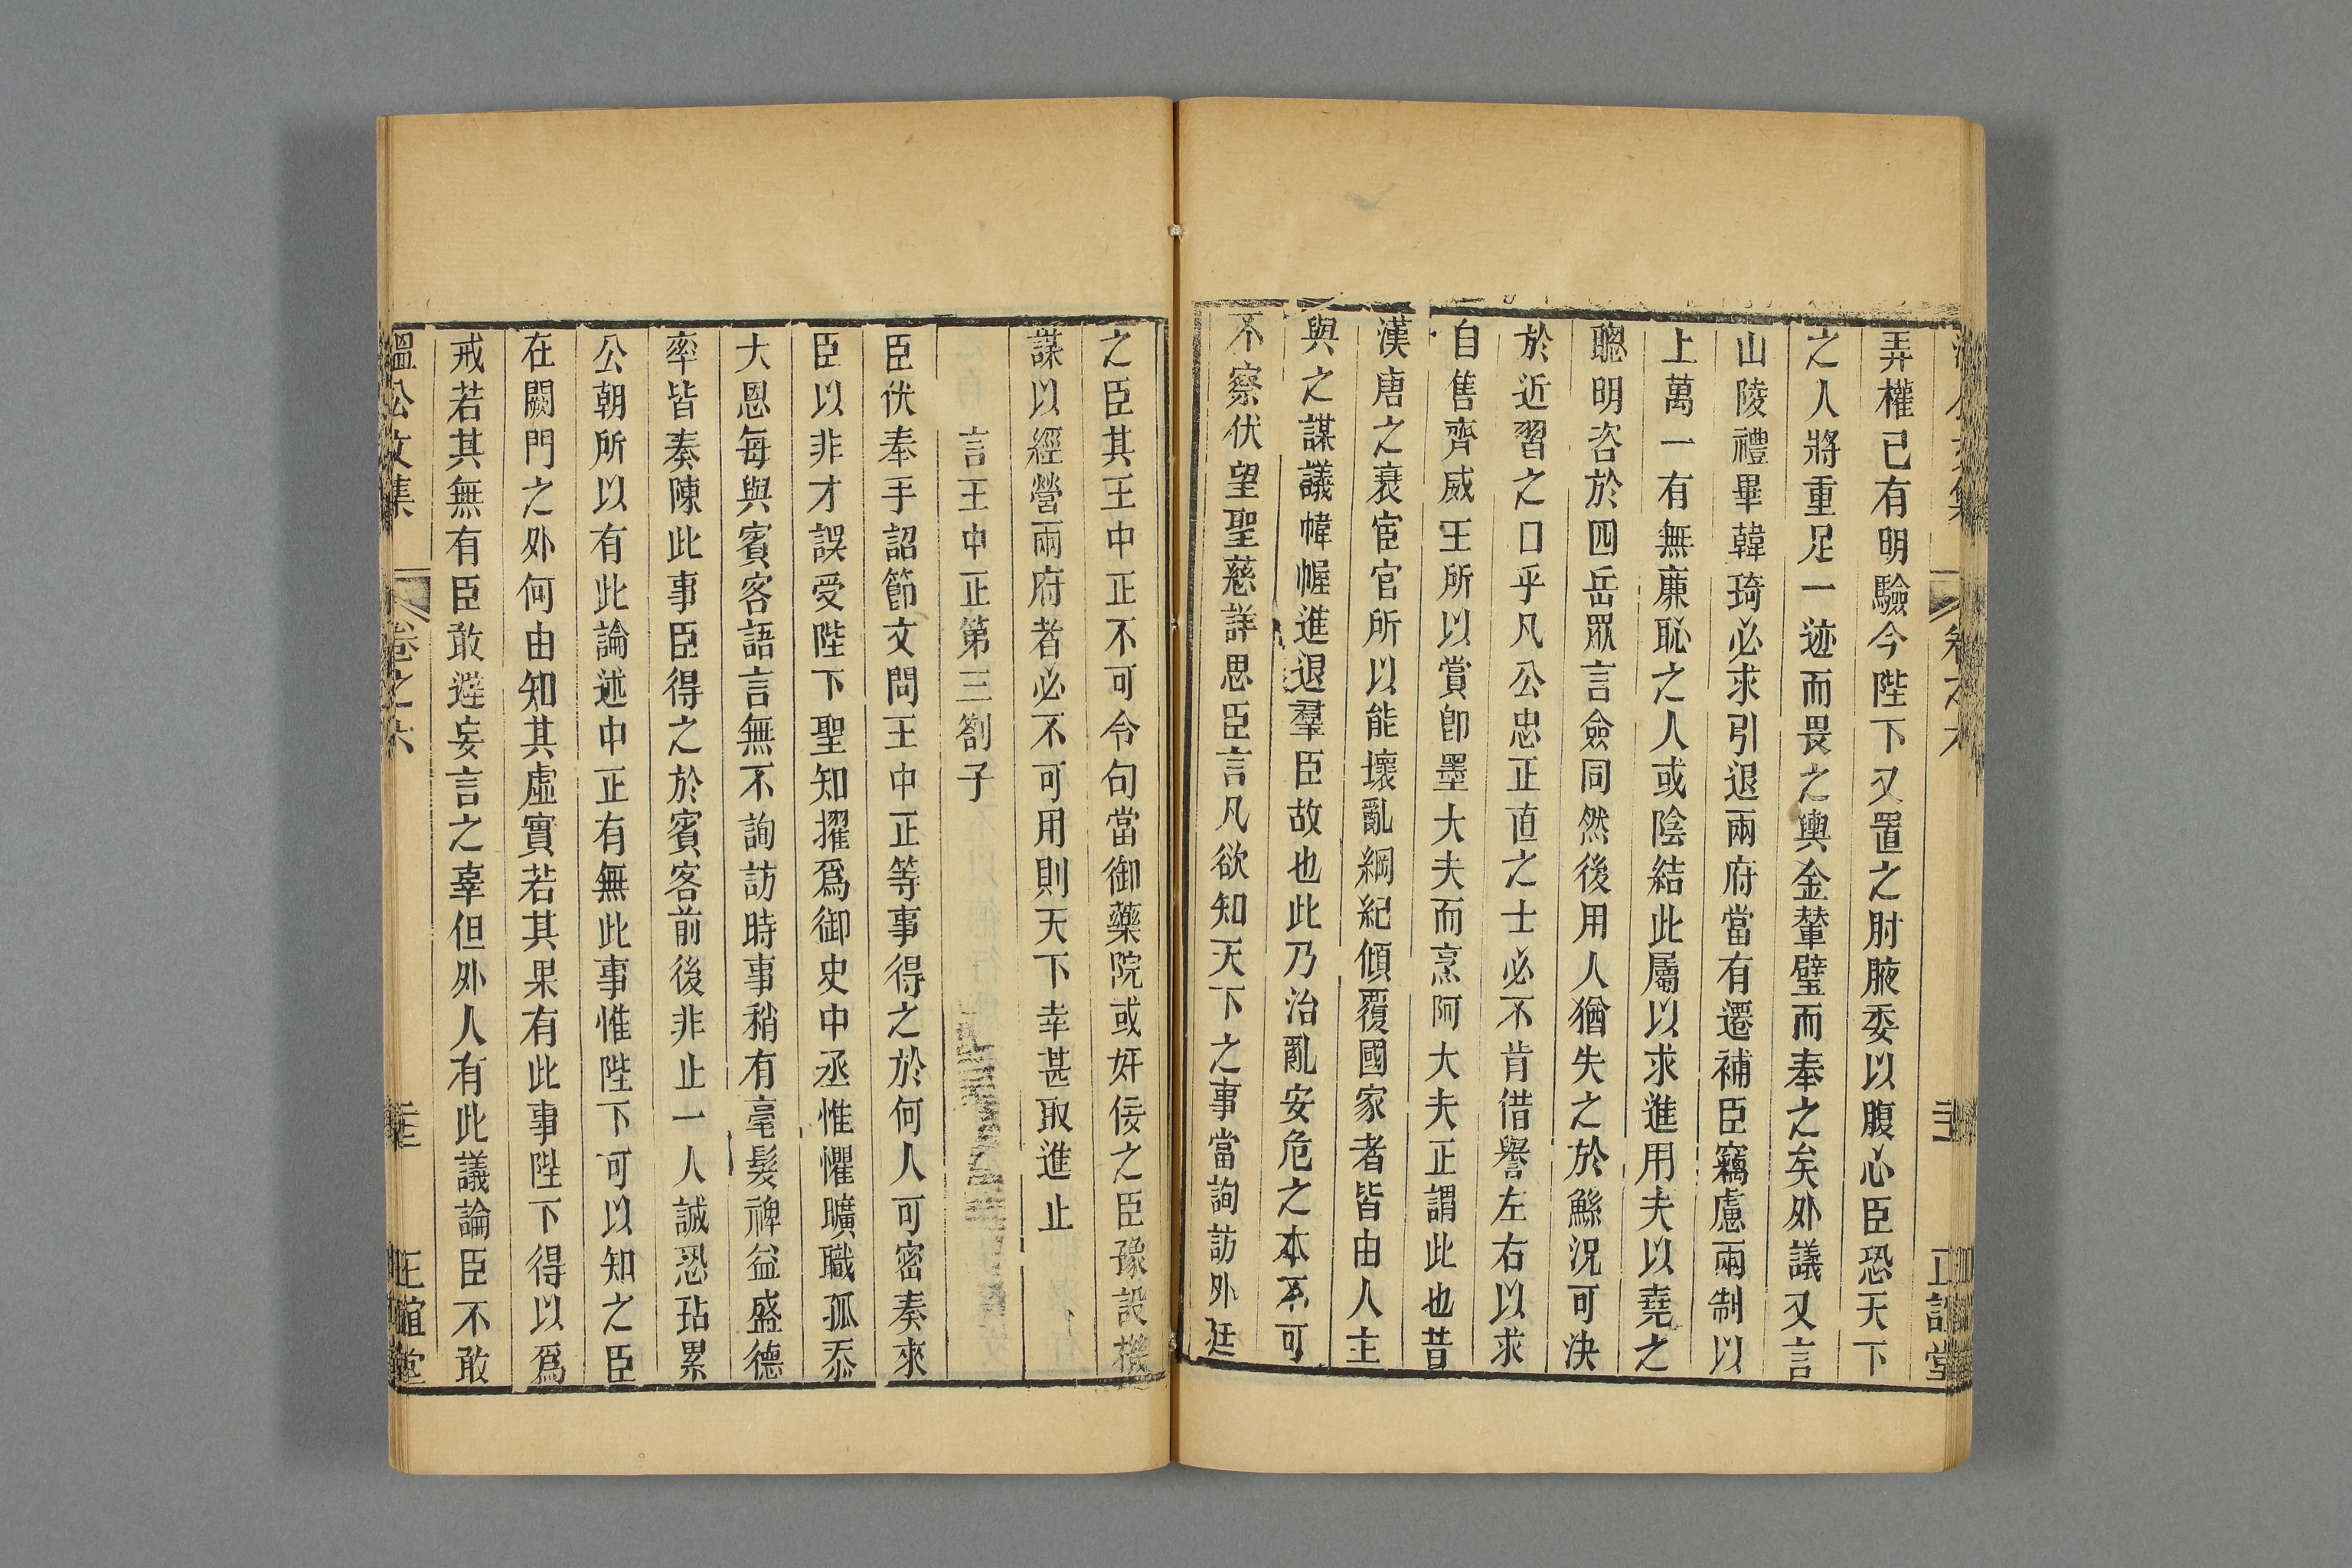 弄權已有明驗今陛下又置之肘腋委以腹心臣恐天下
之人將重足一迹而畏之輿金輦璧而奉之矣外議又言
山陵禮畢韓琦必求引退兩府當有遷補臣竊慮兩制以
上萬一有無廉恥之人或陰結此屬以求進用夫以堯之
聰明咨於四岳眾言僉同然後用人猶失之於鯀況可決
於近習之口乎凡公忠正直之士必不肯借譽左右以求
自售齊威王所以賞卽墨大夫而烹阿大夫正謂此也昔
漢唐之衰宦官所以能壞亂綱紀傾覆國家者皆由人主
與之謀議幃幄進退羣臣故也此乃治亂安危之本不可
不察伏望聖慈詳思臣言凡欲知天下之事當詢訪外廷
之臣其王中正不可令句當御藥院或奸佞之臣豫設機
謀以經營兩府者必不可用則天下幸甚取進止
言王中正第三劄子
臣伏奉手詔節文問王中正等事得之於何人可密奏來
臣以非才誤受陛下聖知擢爲御史中丞惟懼曠職孤忝
大恩每與賓客語言無不詢訪時事稍有毫髮裨益盛德
率皆奏陳此事臣得之於賓客前後非止一人誠恐玷累
公朝所以有此論述中正有無此事惟陛下可以知之臣
在闕門之外何由知其虛實若其果有此事陛下得以爲
戒若其無有臣敢避妄言之辜但外人有此議論臣不敢
溫公文集 卷之六 正誼堂